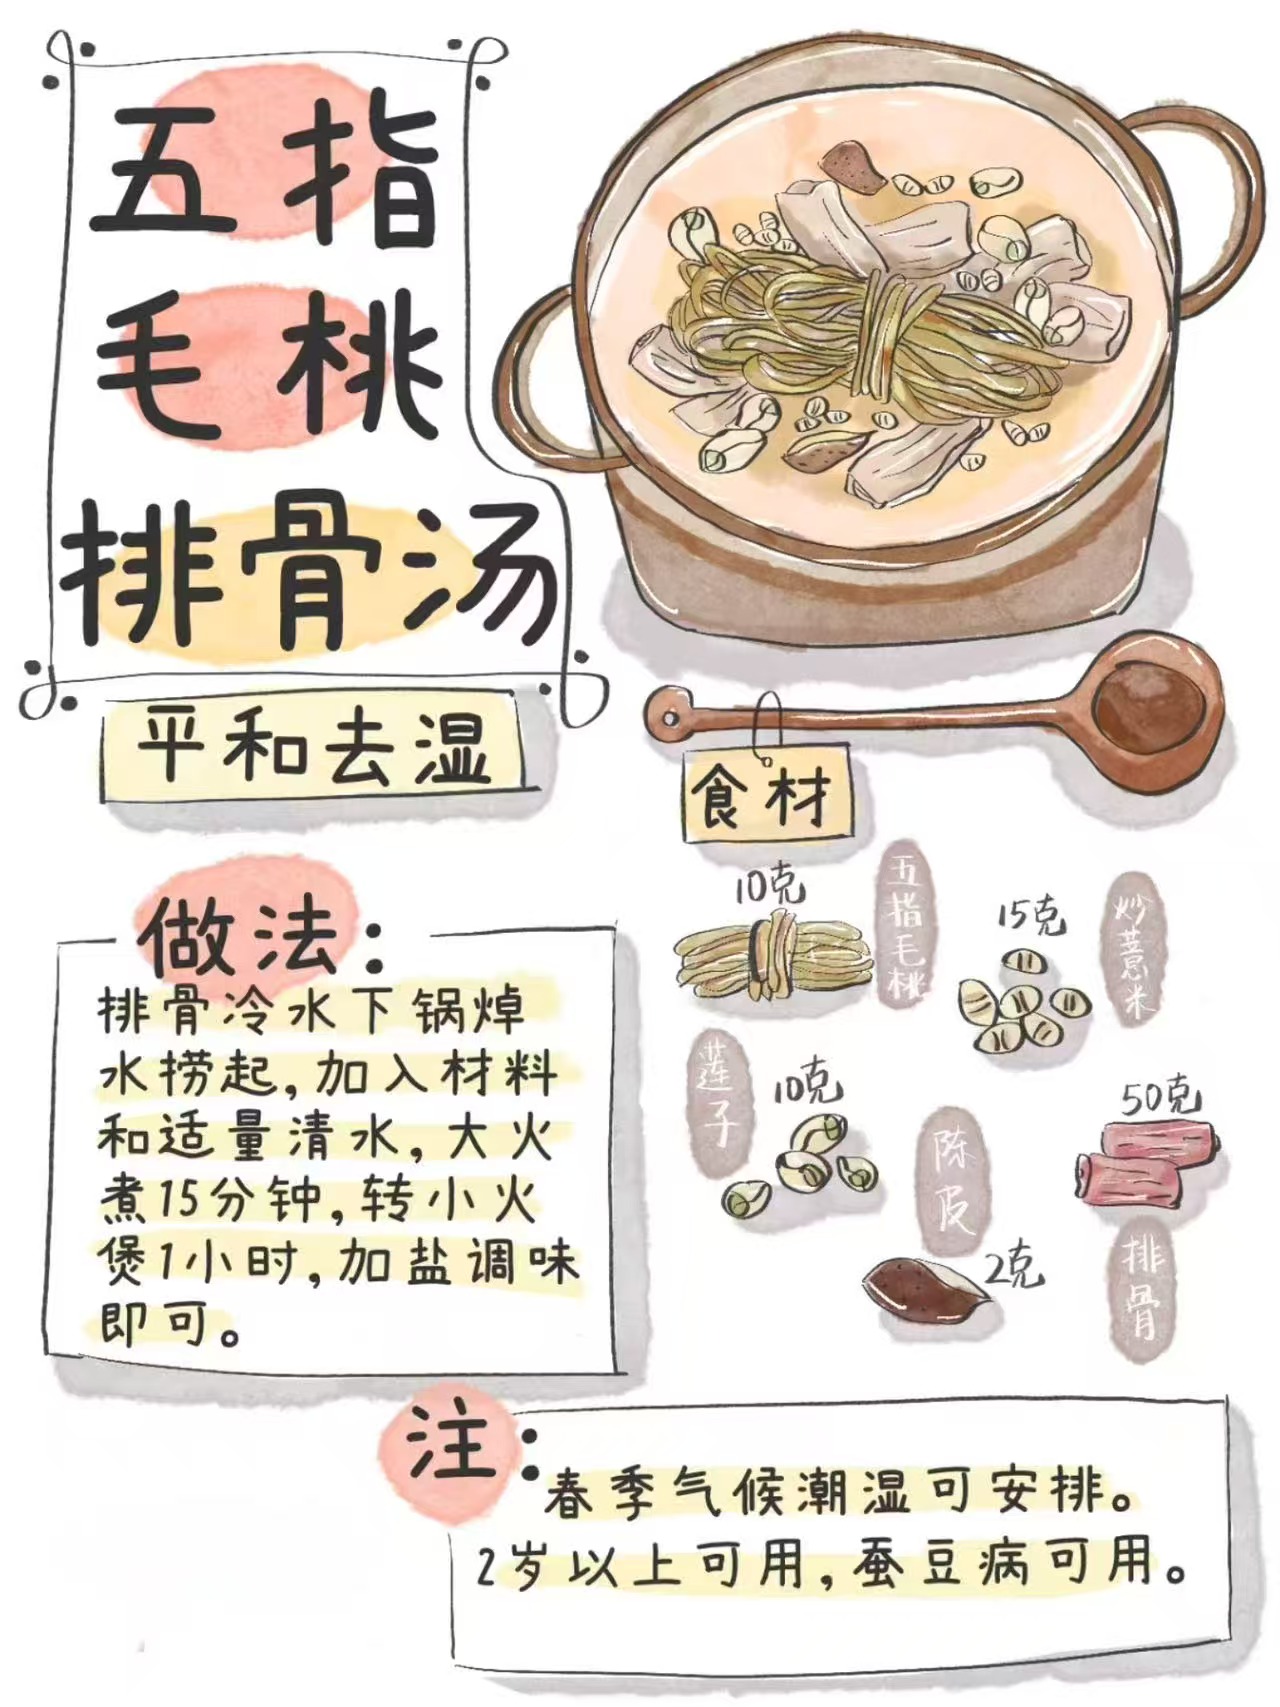 五指
毛桃
排骨汤
平和去湿
食材
10克
五指毛桃
15克
炒薏米
莲子
10克
陈皮
2克
50克
排骨
做法：
排骨冷水下锅焯
水捞起，加入材料
和适量清水，大火
煮15分钟，转小火
煲1小时，加盐调味
即可。
注：
春季气候潮湿可安排。
2岁以上可用，蚕豆病可用。